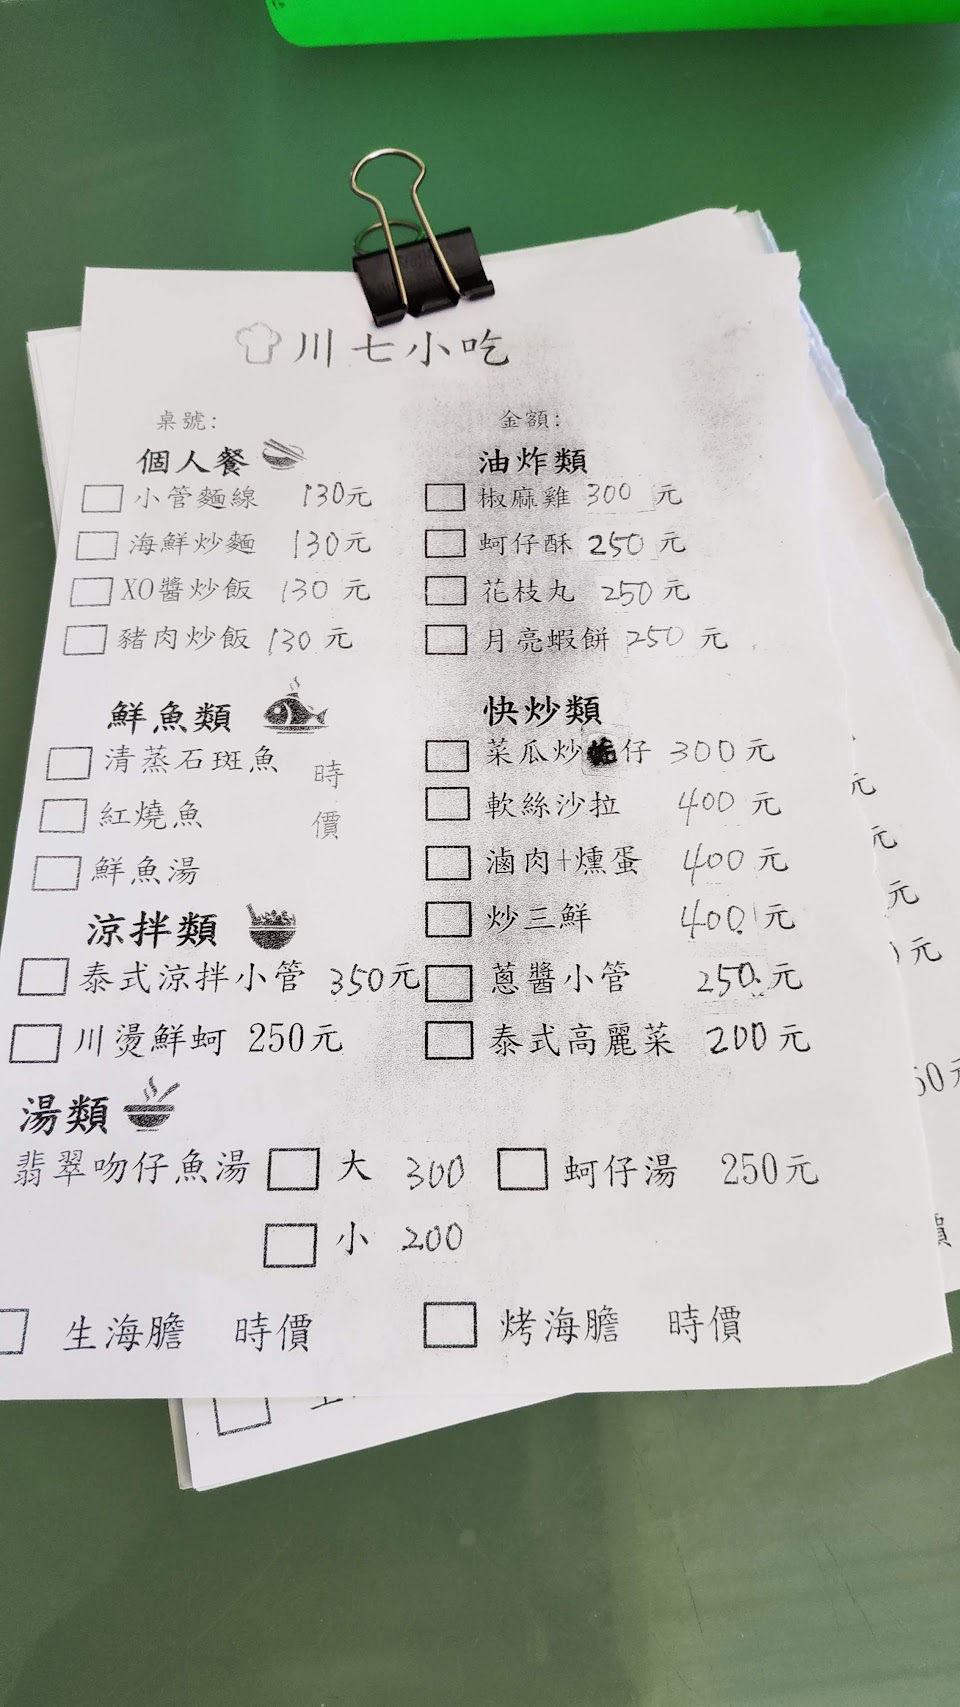 川七小吃
桌號:
金額:
個人餐
小管麵線 130元
海鮮炒麵 130元
XO醬炒飯 130元
豬肉炒飯 130元
油炸類
椒麻雞 300元
蚵仔酥 250元
花枝丸 250元
月亮蝦餅 250元
鮮魚類
清蒸石斑魚
紅燒魚
鮮魚湯
時價
快炒類
菜瓜炒 仔 300元
軟絲沙拉 400元
滷肉+燻蛋 400元
炒三鮮 400元
蔥醬小管 250元
泰式高麗菜 200元
涼拌類
泰式涼拌小管 350元
川燙鮮蚵 250元
湯類
翡翠吻仔魚湯 大 300
小 200
蚵仔湯 250元
生海膽 時價
烤海膽 時價